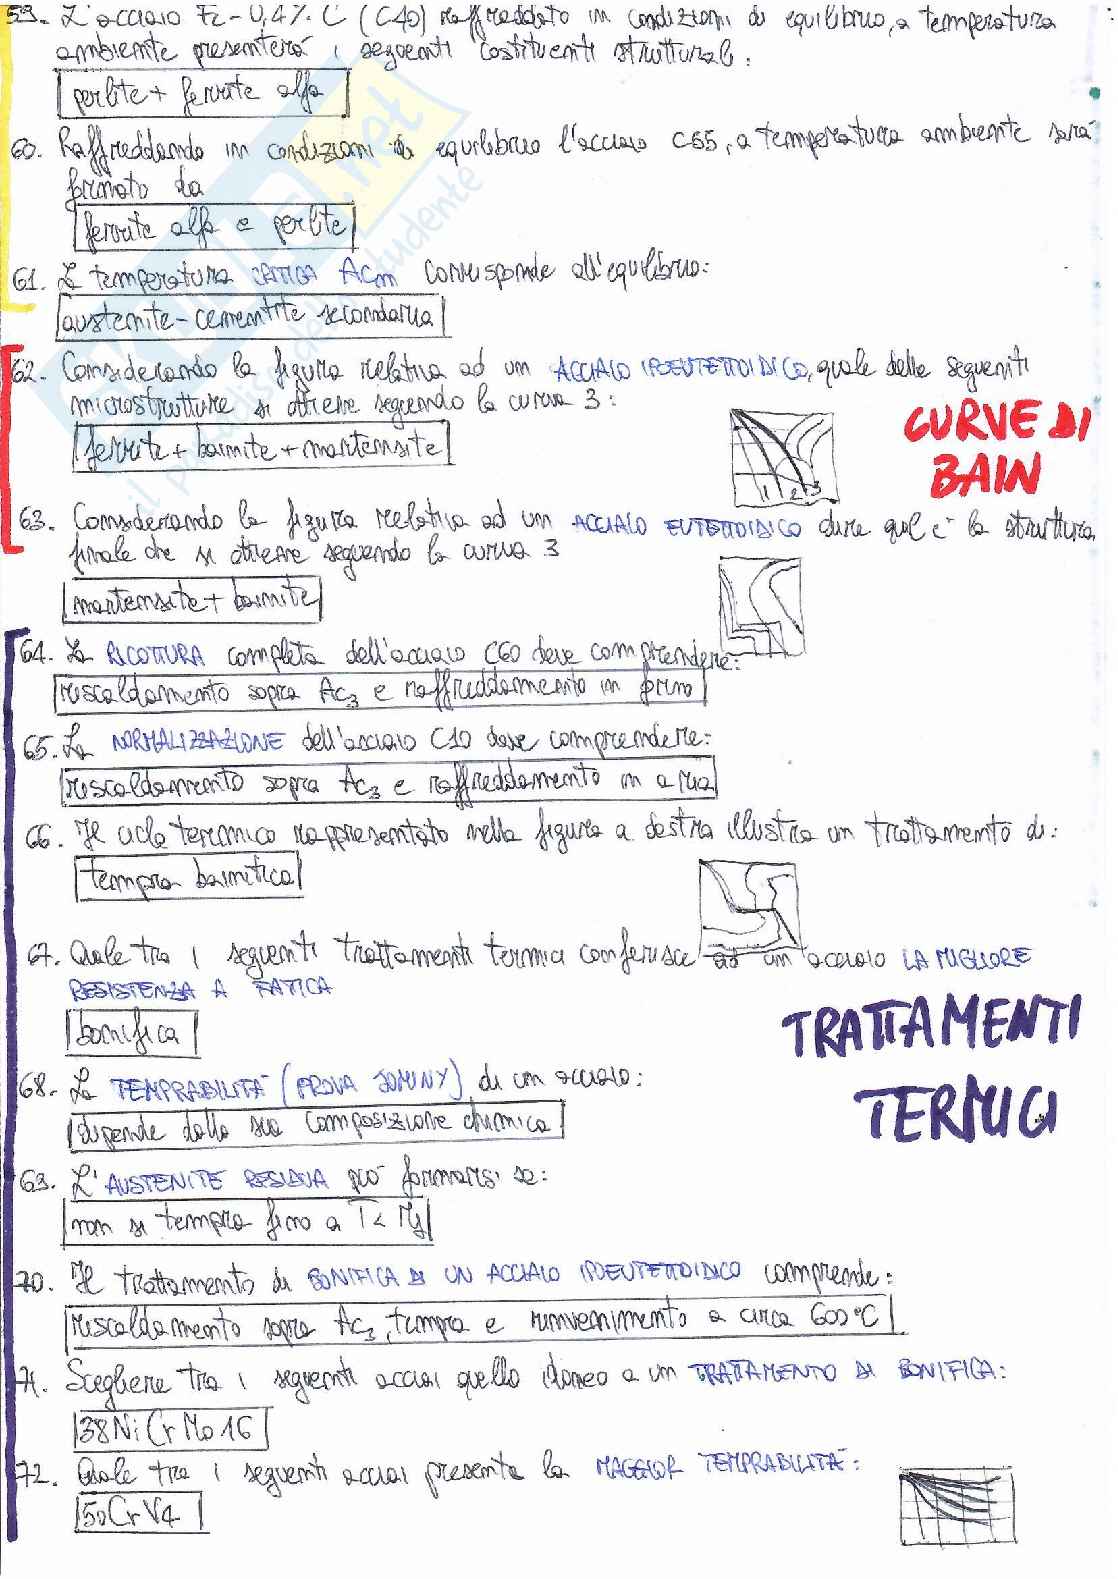 59. L'acciaio Fe-0,4% C (C40) raffreddato in condizioni di equilibrio, a temperatura
ambiente presenterà i seguenti costituenti strutturali:
perlite + ferrite alfa
60. Raffreddando in condizioni di equilibrio l'acciaio C55, a temperatura ambiente sarà
formato da
ferrite alfa e perlite
61. La temperatura CRITICA Acm corrisponde all'equilibrio:
austenite-cementite secondaria
62. Considerando la figura relativa ad un ACCIAIO IPOEUTETTOIDICO, quale delle seguenti
microstrutture si ottiene seguendo la curva 3:
ferrite + bainite + martensite
1 2 3
CURVE DI
BAIN
63. Considerando la figura relativa ad un ACCIAIO EUTETTOIDICO dire qual è la struttura
finale che si ottiene seguendo la curva 3
martensite + bainite
64. La RICOTTURA completa dell'acciaio C60 deve comprendere:
riscaldamento sopra Ac3 e raffreddamento in forno
65. La NORMALIZZAZIONE dell'acciaio C10 deve comprendere:
riscaldamento sopra Ac3 e raffreddamento in aria
66. Il ciclo termico rappresentato nella figura a destra illustra un trattamento di:
tempra bainitica
67. Quale tra i seguenti trattamenti termici conferisce ad un acciaio LA MIGLIORE
RESISTENZA A FATICA
bonifica
TRATTAMENTI
TERMICI
68. La TEMPRABILITÀ (PROVA JOMINY) di un acciaio:
dipende dalla sua composizione chimica
69. L'AUSTENITE RESIDUA può formarsi se:
non si tempra fino a T < Mf
70. Il trattamento di BONIFICA DI UN ACCIAIO IPOEUTETTOIDICO comprende:
riscaldamento sopra Ac3, tempra e rinvenimento a circa 600°C
71. Scegliere tra i seguenti acciai quello idoneo a un TRATTAMENTO DI BONIFICA:
38NiCrMo16
72. Quale tra i seguenti acciai presenta la MAGGIOR TEMPRABILITÀ:
50CrV4